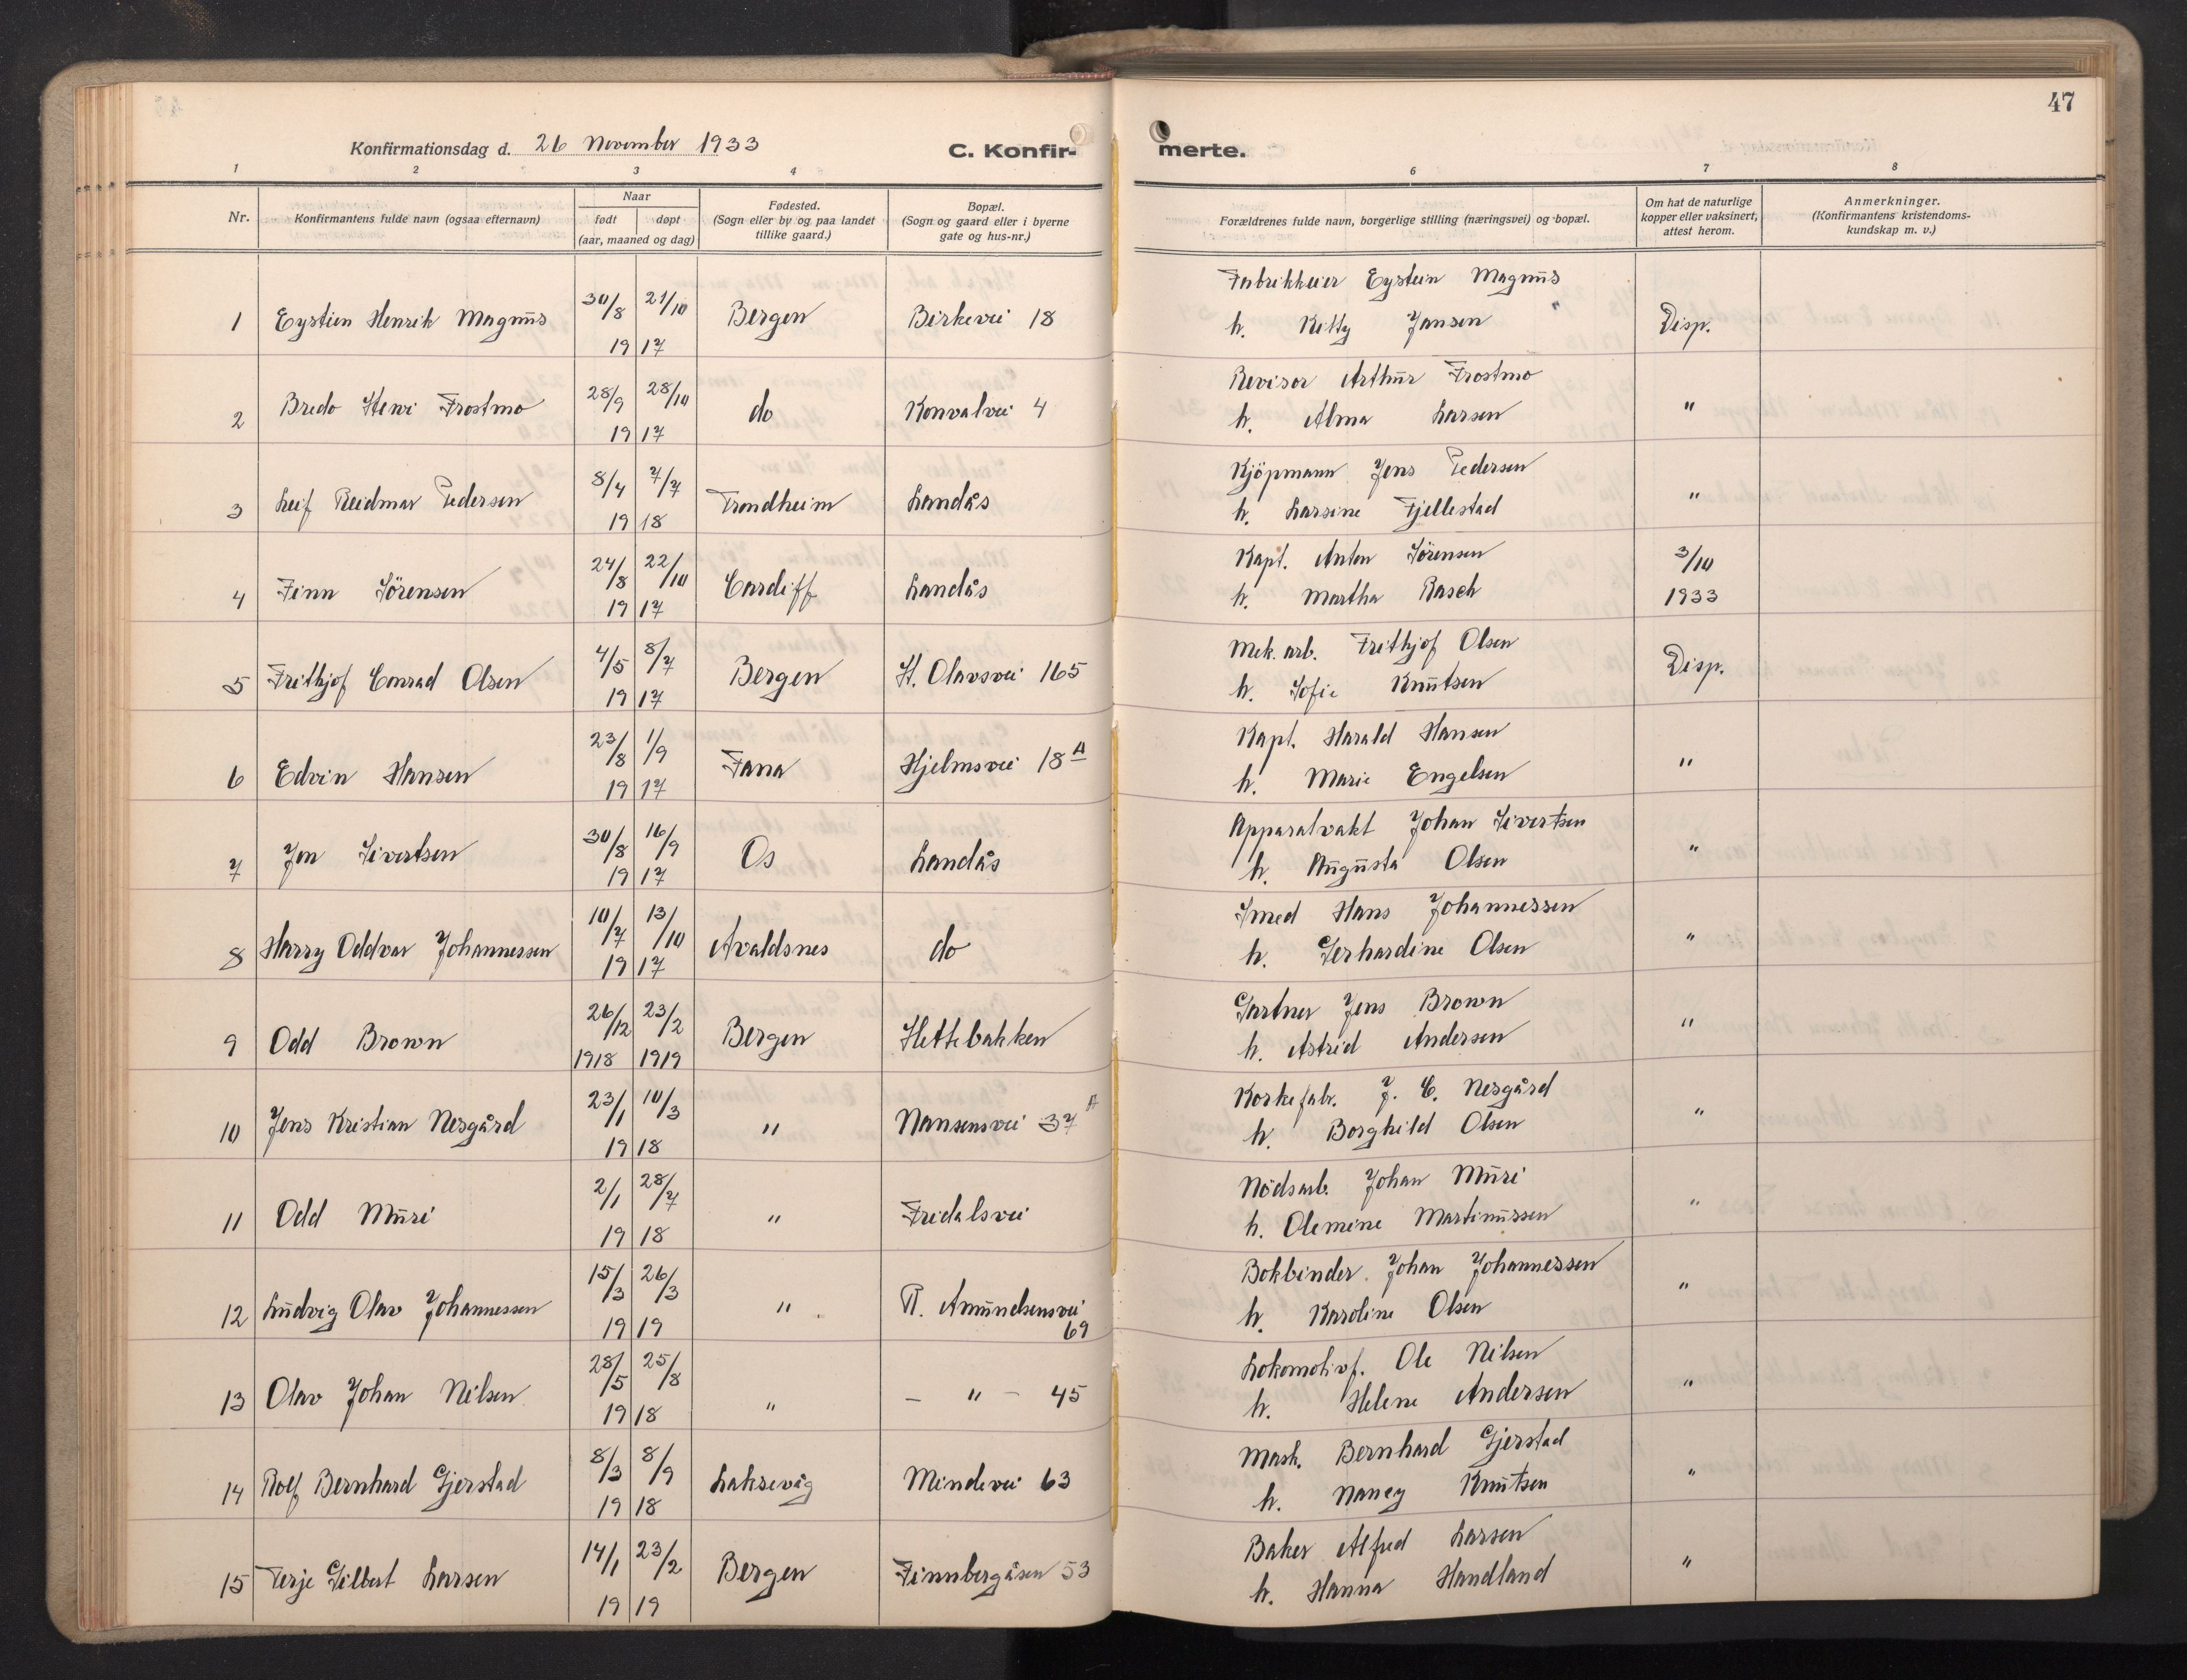 47
Konfirmationsdag d. 26 November 1933
C. Konfir- merte.
1 2 3 4 6 7 8
Nr.
Konfirmantens fulde navn (ogsaa efternavn)
Naar
født døpt
(aar, maaned og dag)
Fødested.
(Sogn eller by og paa landet
tillike gaard.)
Bopæl.
(Sogn og gaard eller i byerne
gate og hus-nr.)
Forældrenes fulde navn, borgerlige stilling (næringsvei) og bopæl.
Om hat de naturlige
kopper eller vaksinert,
attest herom.
Anmerkninger.
(Konfirmantens kristendoms-
kundskap m. v.)
30/8 21/10 Fabrikkeier Eystein Magnus
1 Eystein Henrik Magnus Bergen Birkevei 18 h. Kitty Jansen " Disp.
19 17
28/9 28/10 Revisor Arthur Frostmo
2 Bredo Henri Frostmo do Konvalvei 4 h. Alma Larsen "
19 17
8/4 7/7 Kjöpmann Jens Pedersen
3 Leif Reidmar Pedersen Trondheim Landås h. Larsine Fjellestad "
19 18
24/8 22/10 Kapt. Anton Sörensen 3/10
4 Finn Sörensen Cardiff Landås h. Martha Rasch 1933
19 17
4/5 8/7 Mek. arb. Frithjof Olsen
5 Frithjof Conrad Olsen Bergen St. Olavsvei 165 h. Sofie Knutsen Disp.
19 17
23/8 1/9 Kapt. Harald Hansen
6 Edvin Hansen Fana Hjelmsvei 18 A h. Marie Engelsen "
19 17
30/8 16/9 Apparatvakt Johan Sivertsen
7 Jon Sivertsen Os Landås h. Augusta Olsen "
19 17
10/7 13/10 Smed Hans Johannessen
8 Harry Oddvar Johannessen Avaldsnes do h. Gerhardine Olsen "
19 17
26/12 23/2 Gartner Jens Brown
9 Odd Brown Bergen Slettebakken h. Astrid Andersen "
1918 1919
23/1 10/3 Korkefabr. J. C. Nesgård
10 Jens Kristian Nesgård " Nansensvei 37 A h. Borghild Olsen "
19 18
2/1 28/7 Nödsarb. Johan Muri
11 Odd Muri " Fridalsvei h. Olemine Martinussen "
19 18
15/3 26/3 Bokbinder Johan Johannessen
12 Ludvig Olav Johannessen " R. Amundsensvei 69 h. Karoline Olsen "
19 19
28/5 25/8 Lokomotivf. Ole Nilsen
13 Olav Johan Nilsen " – " – 45 h. Helene Andersen "
19 18
8/3 8/9 Mask. Bernhard Gjerstad
14 Rolf Bernhard Gjerstad Laksevåg Mindevei 63 h. Nancy Knutsen "
19 18
14/1 23/2 Baker Alfred Larsen
15 Terje Gilbert Larsen Bergen Finnbergåsen 53 h. Hanna Handland "
19 19